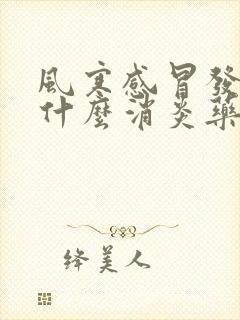 風寒感冒發
什麼消炎藥
絳美人